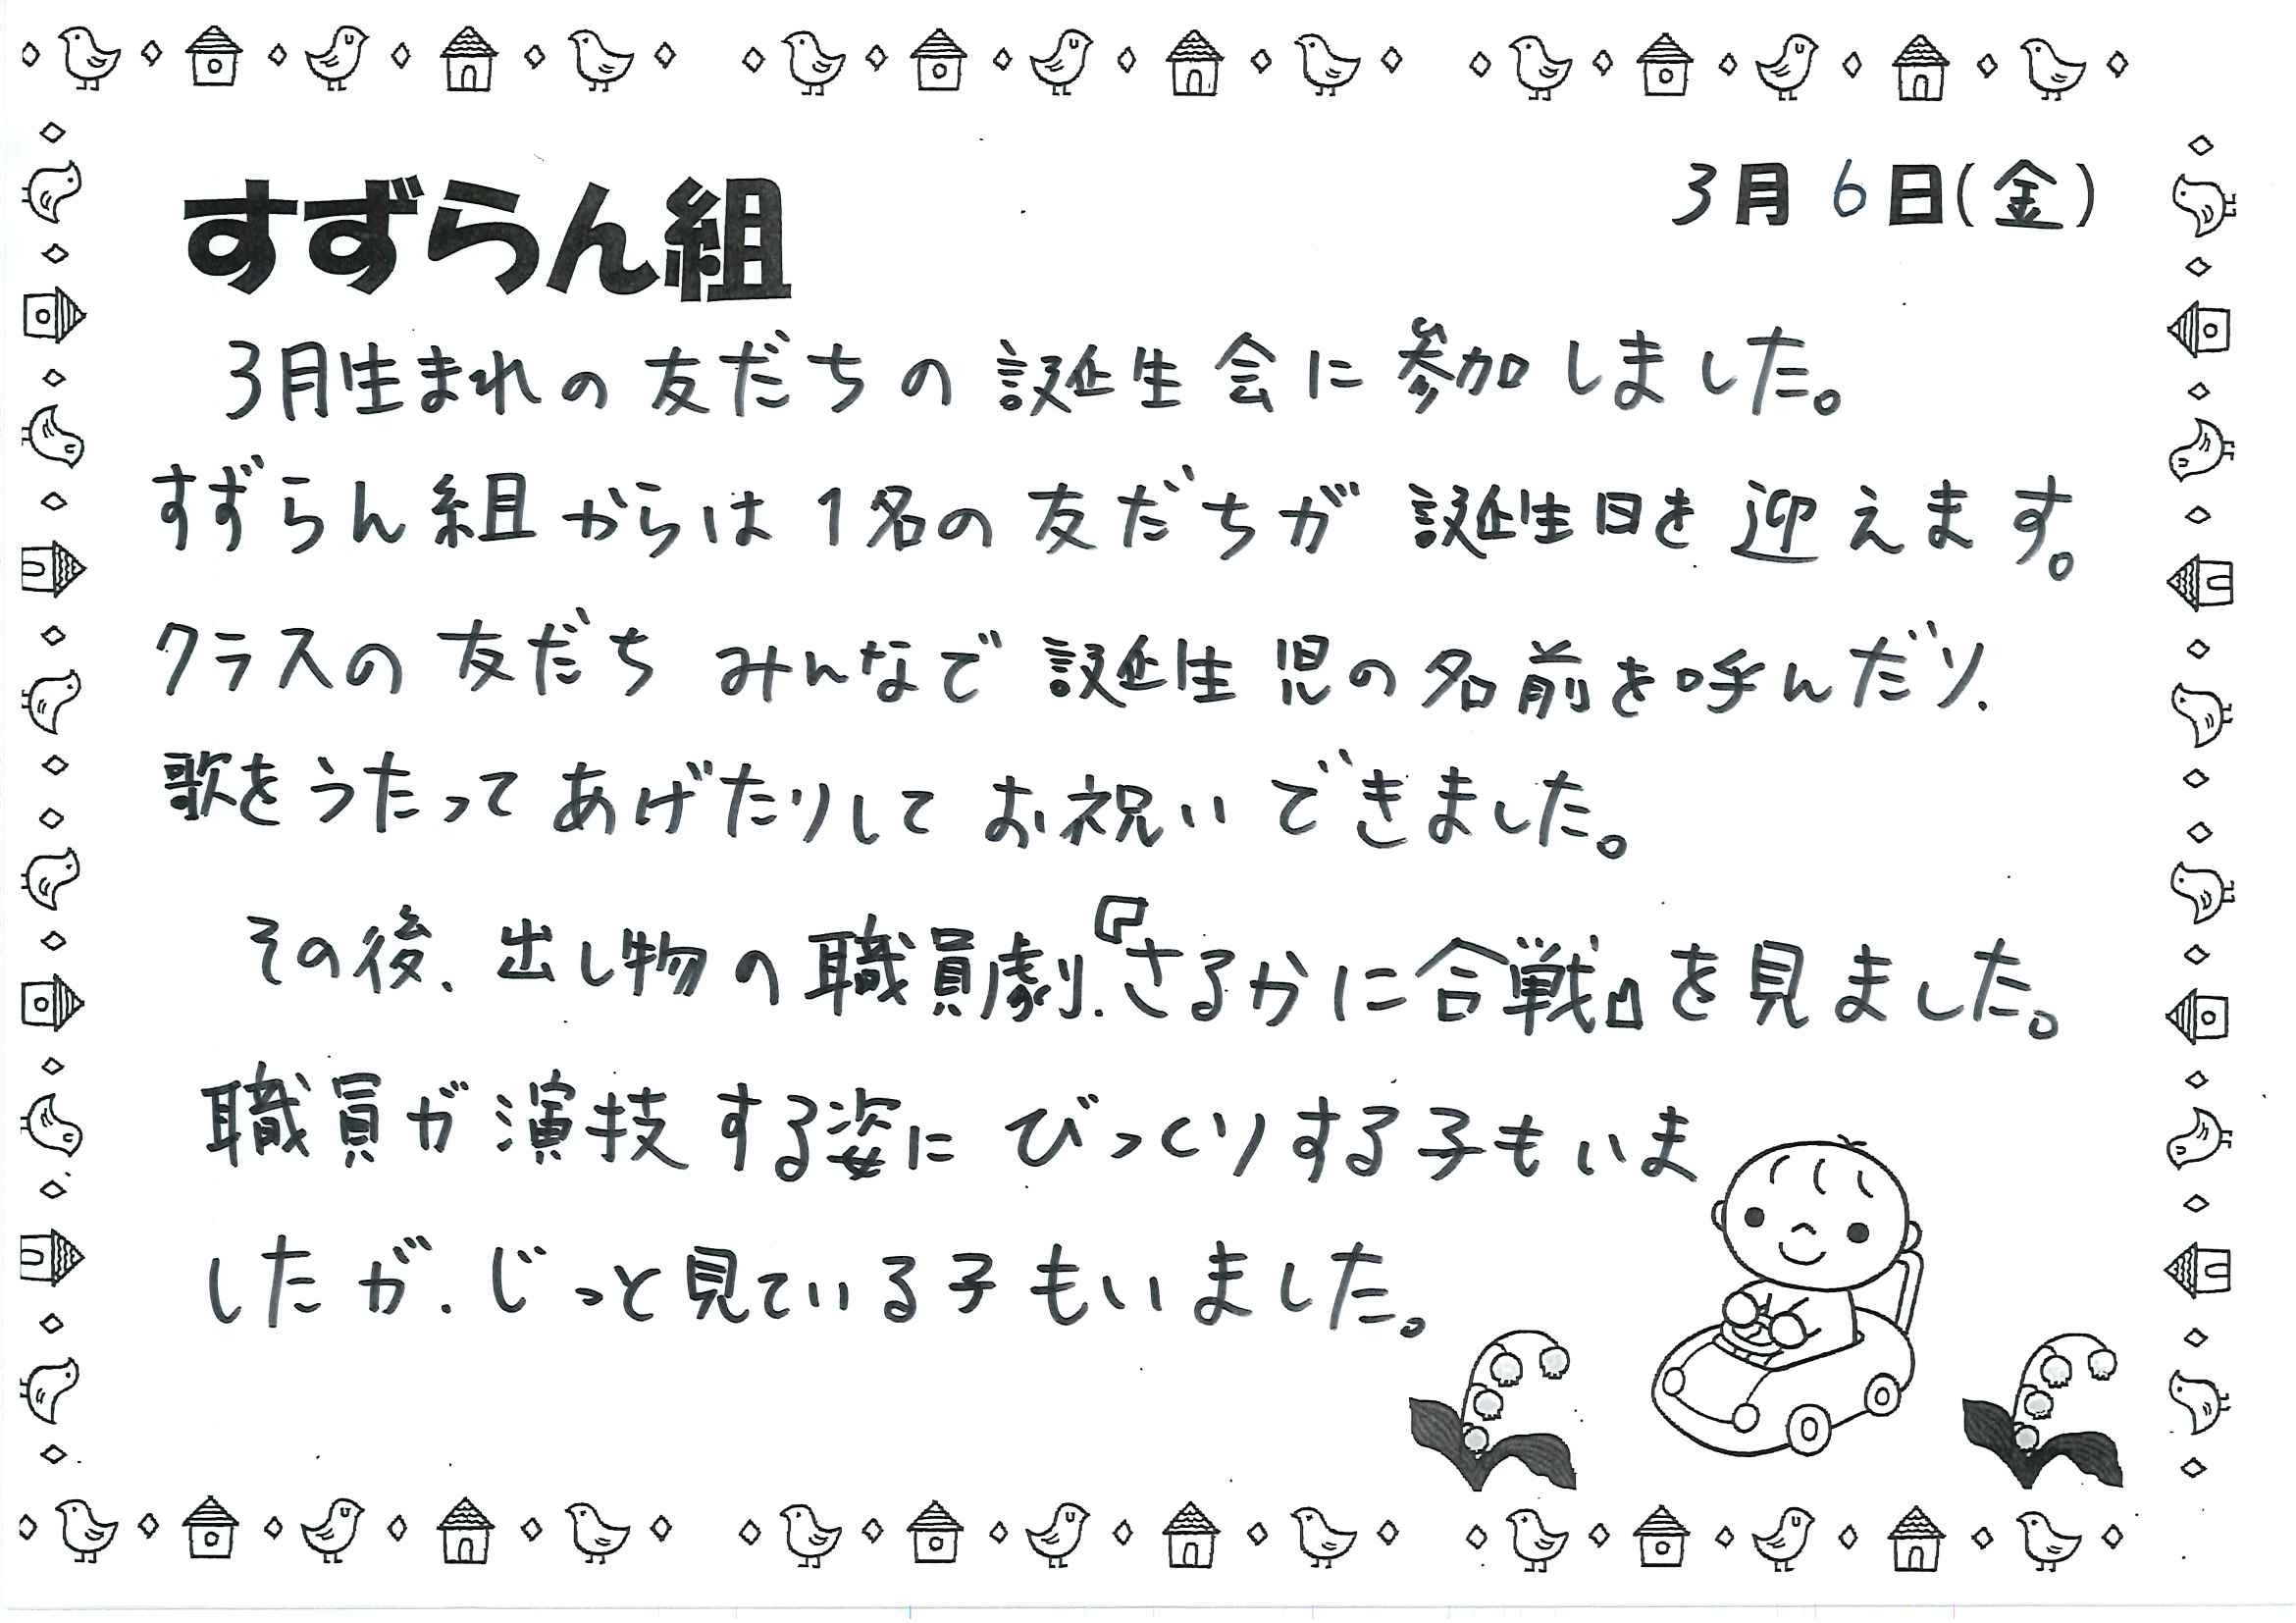 すずらん組
3月6日(金)
3月生まれの友だちの誕生会に参加しました。
すずらん組からは1名の友だちが誕生日を迎えます。
クラスの友だちみんなで誕生児の名前を呼んだり、
歌をうたってあげたりしてお祝いできました。
その後、出し物の職員劇、『さるかに合戦』を見ました。
職員が演技する姿にびっくりする子もいま
したが、じっと見ている子もいました。